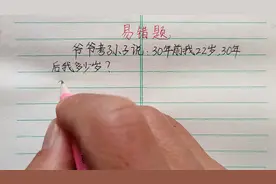 易错题
爷爷考孙子说:30年前我22岁,30年
后我多少岁?